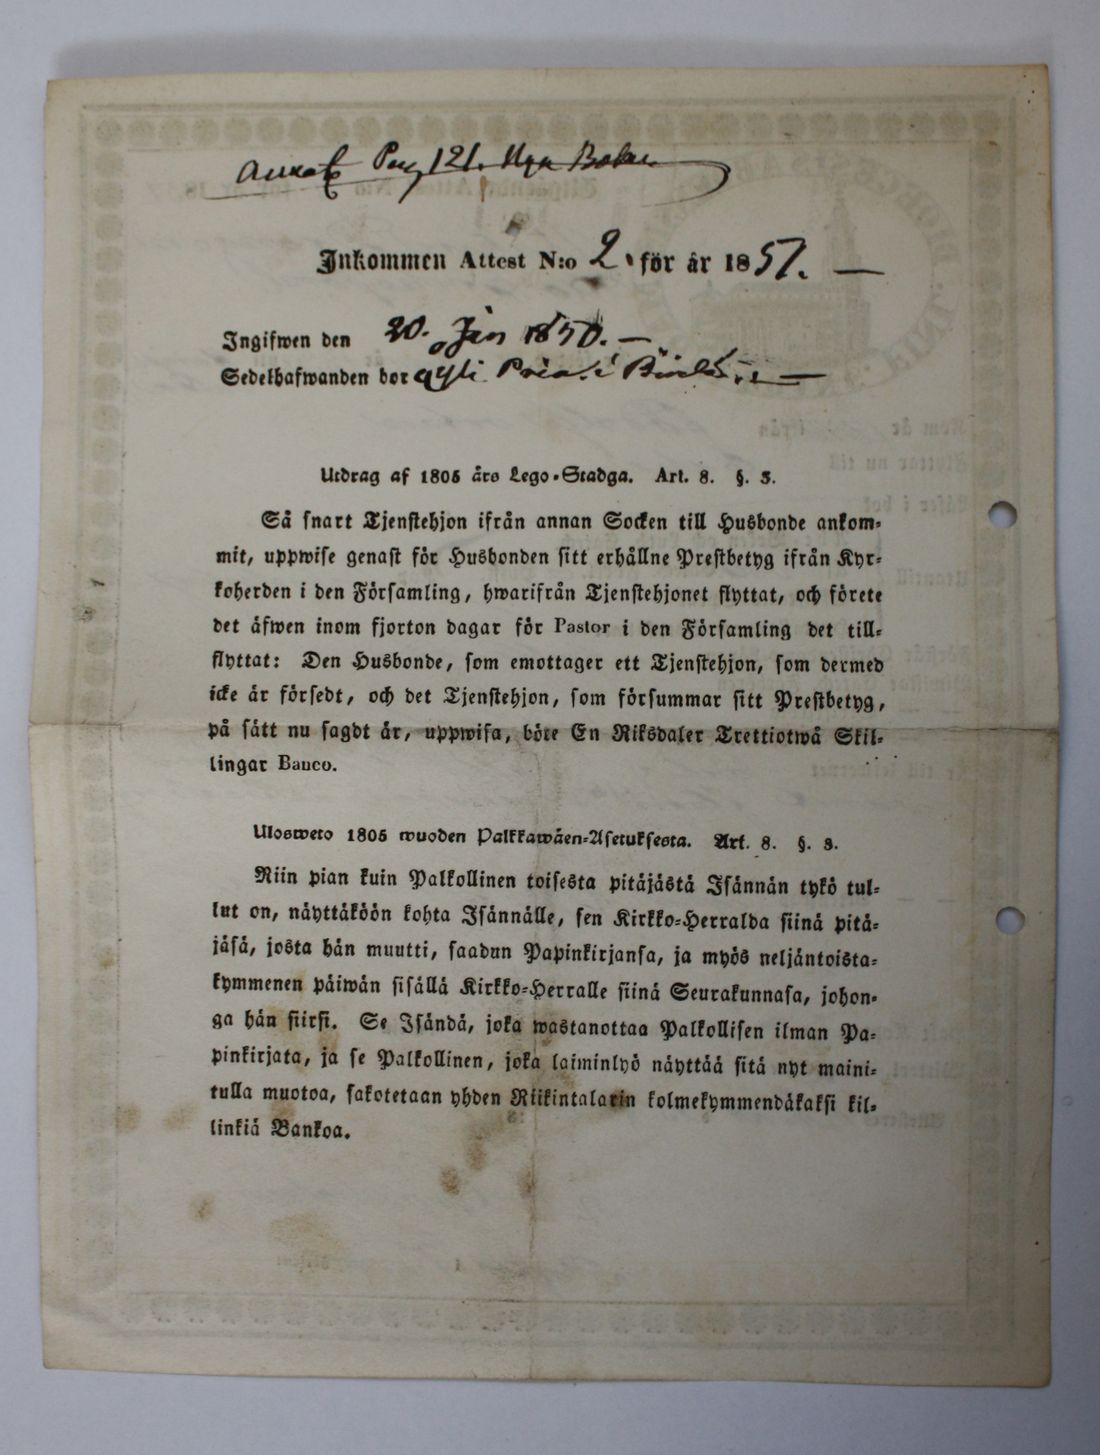 Pag 121. Nya Boken
Inkommen Attest N:o 2. för år 1851. —
Ingifwen den 20. Jan 1850. —
Sedelhafwanden bor
Utdrag af 1805 års Lego-Stadga. Art. 8. §. 3.
Så snart Tjenstehjon ifrån annan Socken till Husbonde ankom-
mit, uppwise genast för Husbonden sitt erhållne Prestbetyg ifrån Kyr-
koherden i den Församling, hwarifrån Tjenstehjonet flyttat, och förete
det äfwen inom fjorton dagar för Pastor i den Församling det till-
flyttat: Den Husbonde, som emottager ett Tjenstehjon, som dermed
icke är försedt, och det Tjenstehjon, som försummar sitt Prestbetyg,
på sätt nu sagdt är, uppwisa, böte En Riksdaler Trettiotwå Skil-
lingar Banco.
Ulosweto 1805 wuoden Palkkawäen-Asetuksesta. Art. 8. §. 3.
Niin pian kuin Palkollinen toisesta pitäjästä Isännän tykö tul-
lut on, näyttäköön kohta Isännälle, sen Kirkko-Herralda siinä pitä-
jäsä, josta hän muutti, saadun Papinkirjansa, ja myös neljäntoista-
kymmenen päiwän sisällä Kirkko-Herralle siinä Seurakunnasa, johon-
ga hän siirsi. Se Isändä, joka wastanottaa Palkollisen ilman Pa-
pinkirjata, ja se Palkollinen, joka laiminlyö näyttää sitä nyt maini-
tulla muotoa, sakotetaan yhden Riikintalarin kolmekymmendäkaksi kil-
linkiä Bankoa.